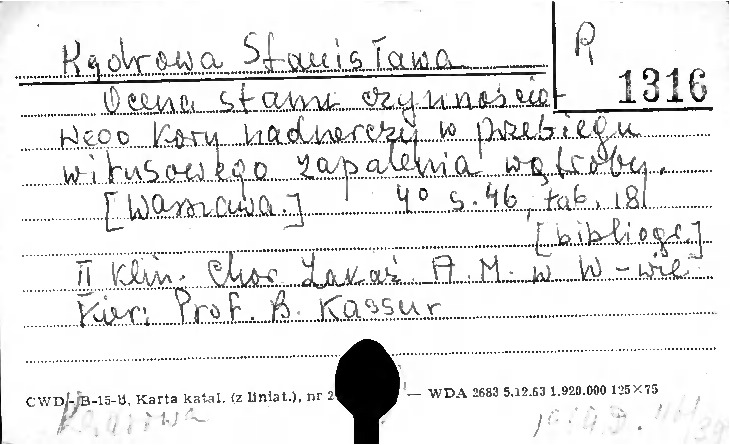 Kądrowa Stanisława
R 1316
Ocena stanu czynnościo-
wego kory nadnerczy w przebiegu
wirusowego zapalenia wątroby.
[Warszawa.] 4° s. 46, tab. 18
[bibliogr.]
II Klin. Chor Zakaź. A. M. w W-wie
Kier: Prof. B. Kassur
CWD/-B-15-8, Karta katal. (z liniat.), nr 2 — WDA 2683 5.12.63 1.920.000 125×75